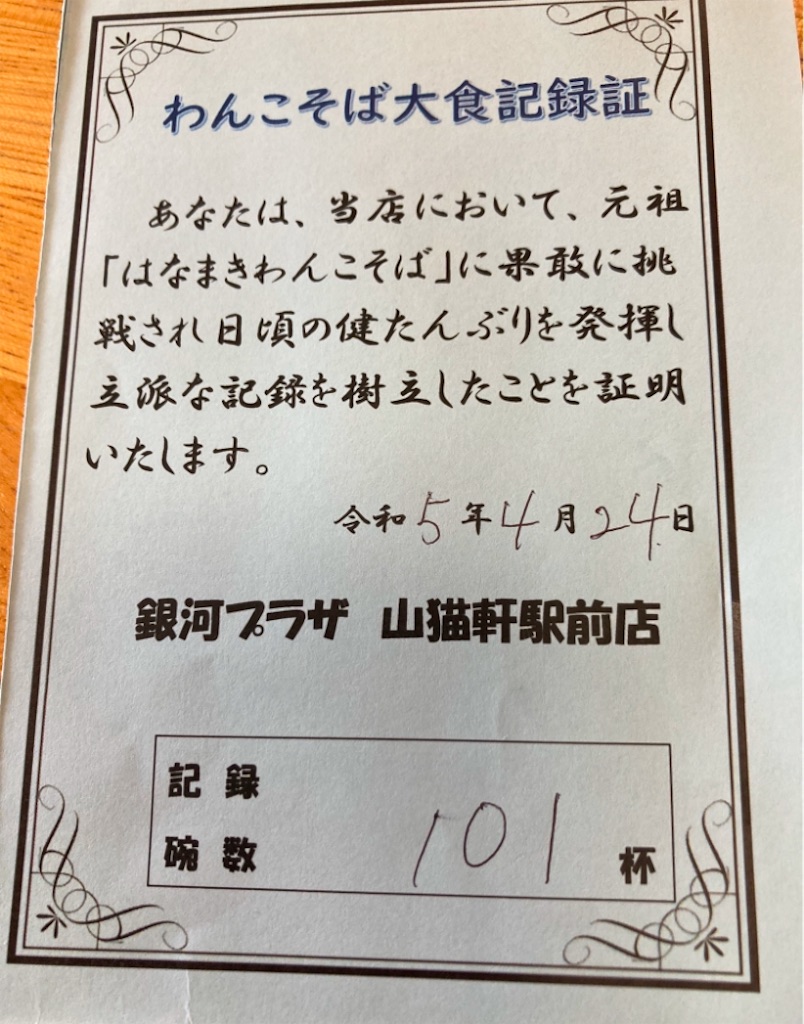 わんこそば大食記録証
あなたは、当店において、元祖
「はなまきわんこそば」に果敢に挑
戦され日頃の健たんぶりを発揮し
立派な記録を樹立したことを証明
いたします。
令和5年4月24日
銀河プラザ 山猫軒駅前店
記録
碗数 101 杯